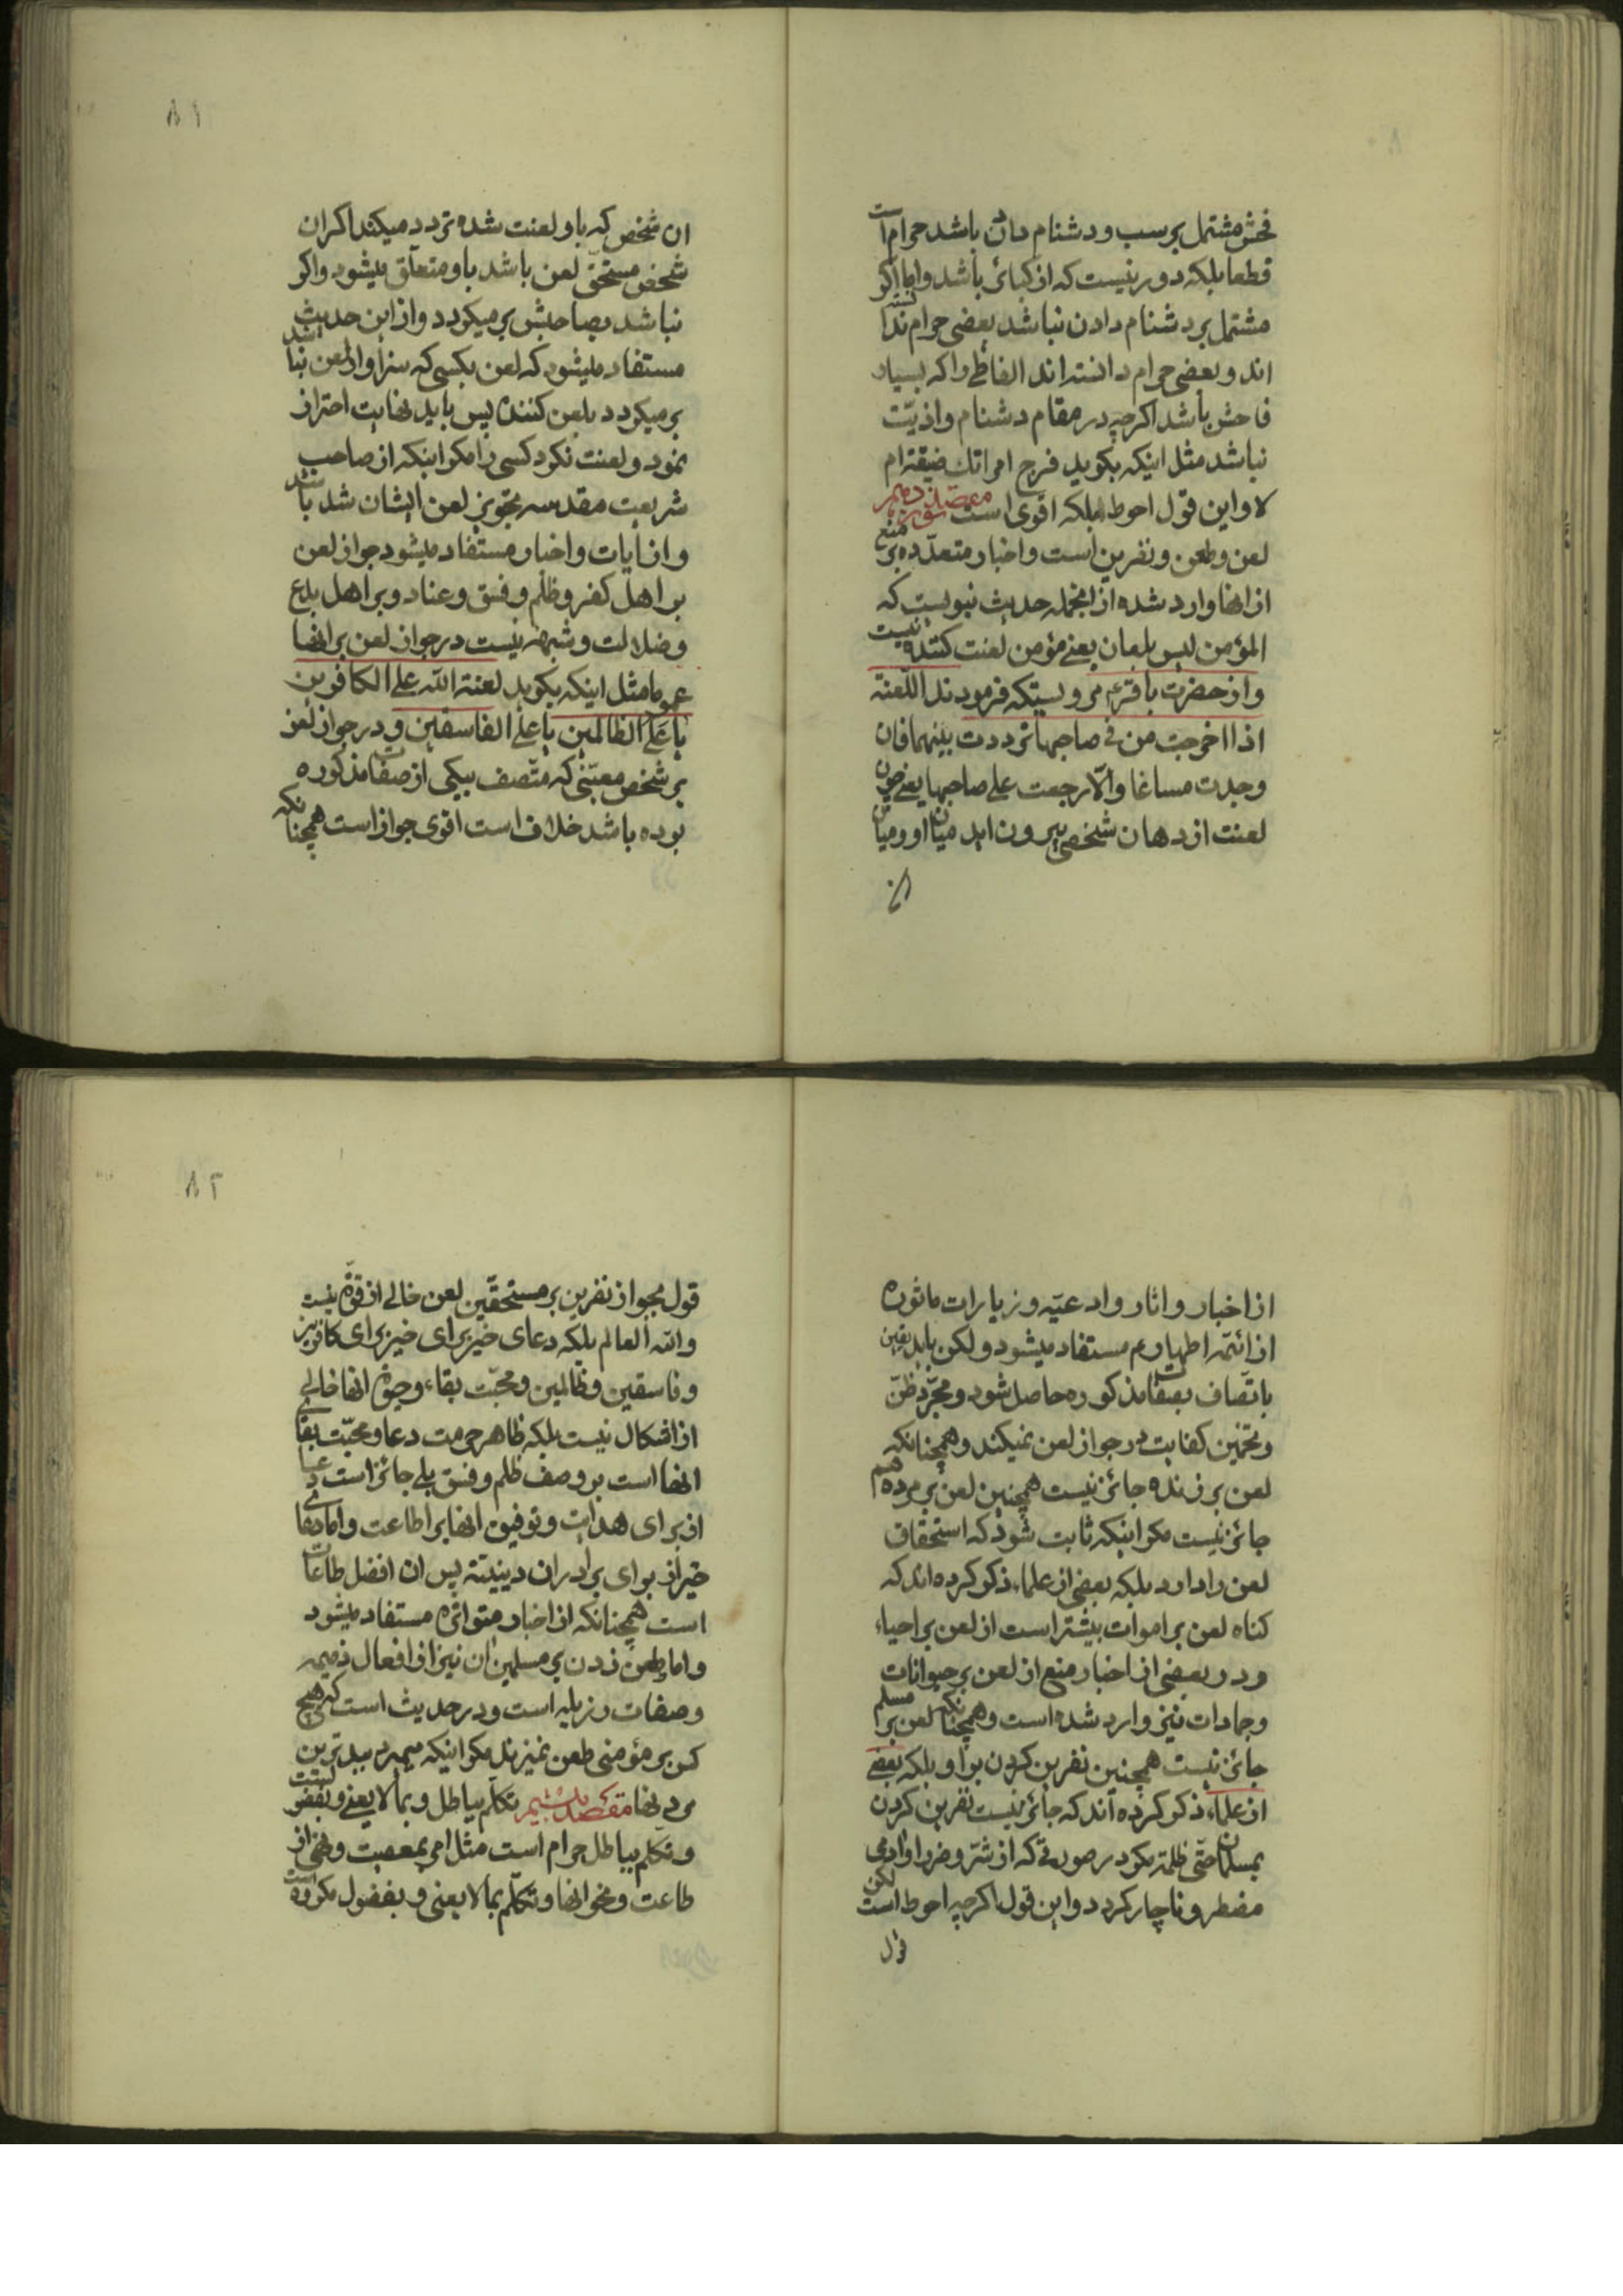 فحش مشتمل بر سب و دشنام دادن باشد حرام است
قطعا بلکه دور نیست که از کبائر باشد و اما اکر
مشتمل بر دشنام دادن نباشد بعضی حرام ندانسته
اند و بعضی حرام دانسته اند الفاظی را که بسیار
فاحش باشد اکرچه در مقام دشنام و اذیّت
نباشد مثل اینکه بکوید فرج امراتك ضیقة ام
لا و این قول احوط بلکه اقوی است مقصد نوزدهم
لعن و طعن و نفرین است و اخبار متعدّده بر منع
از انها وارد شده از انجمله حدیث نبویست که
المؤمن لیس بلعان یعنی مؤمن لعنت کننده نیست
و از حضرت باقر ع مرویستکه فرمودند اللّعنة
اذا اخرجت من فی صاحبها ترددت بینهما فان
وجدت مساغا والّا رجعت علی صاحبها یعنی چون
لعنت از دهان شخصی بیرون اید میان او و میان
ان
٨١
ان شخص که باو لعنت شده تردد میکند اکر ان
شخص مستحقّ لعن باشد باو متعلّق میشود و اکر
نباشد بصاحبش بر میکردد و از این حدیث
مستفاد میشود که لعن بکسی که سزاوار لعن نباشد
بر میکردد بلعن کننده پس باید نهایت احتراز
نمود و لعنت نکرد کسی را مکر اینکه از صاحب
شریعت مقدسه تجویز لعن ایشان شده باشد
و از ایات و اخبار مستفاد میشود جواز لعن
بر اهل کفر و ظلم و فسق و عناد و بر اهل بدع
و ضلالت و شبهه نیست در جواز لعن بر انها
عموما مثل اینکه بکوید لعنة اللّه علی الکافرین
یا علی الظالمین یا علی الفاسقین و در جواز لعن
بر شخص معیّنی که متّصف بیکی از صفات مذکوره
بوده باشد خلاف است اقوی جواز است همچنانکه
از اخبار و اثار و ادعیّه و زیارات ماثوره
از ائمّه اطهار ع م مستفاد میشود ولکن باید یقین
باتّصاف بصفات مذکوره حاصل شود و مجرّد ظنّ
و تخمین کفایت در جواز لعن نمیکند و همچنانکه
لعن بر زنده جائز نیست همچنین لعن بر مرده هم
جائز نیست مکر اینکه ثابت شود که استحقاق
لعن را دارد بلکه بعضی از علماء ذکر کرده اند که
کناه لعن بر اموات بیشتر است از لعن بر احیاء
و در بعضی از اخبار منع از لعن بر حیوانات
و جمادات نیز وارد شده است و همچنانکه لعن بر مسلم
جائز نیست همچنین نفرین کردن بر او بلکه بعضی
از علماء ذکر کرده اند که جائز نیست نفرین کردن
بمسلمان حتّی ظلمه مکر در صورتی که از شرّ و ضرر او ادمی
مضطر و ناچار کردد و این قول اکرچه احوط است لکن
قول
٨٢
قول بجواز نفرین بر مستحقّین لعن خالی از قوّة نیست
و اللّه العالم بلکه دعای خیر برای کافرین
و فاسقین و ظالمین و محبّت بقاء و حیوة انها خالی
از اشکال نیست بلکه ظاهر حرمت دعا و محبّت بقای
انها است بر وصف ظلم و فسق بلی جائز است دعا
از برای هدایت و توفیق انها بر اطاعت و اما دعای
خیر از برای برادران دینیّة پس ان افضل طاعات
است همچنانکه از اخبار متواتره مستفاد میشود
و اما طعن زدن بر مسلمین ان نیز از افعال ذمیمه
و صفات رزیله است و در حدیث است که هیچ
کس بر مؤمنی طعن نمیزند مکر اینکه میمیرد ببدترین
مردنها مقصد بیستم تکلّم بباطل و بما لا یعنی و بفضول نیست
و تکلم بباطل حرام است مثل امر بمعصیت و نهی از
طاعت و نحو انها و تکلّم بما لا یعنی و بفضول مکروه است